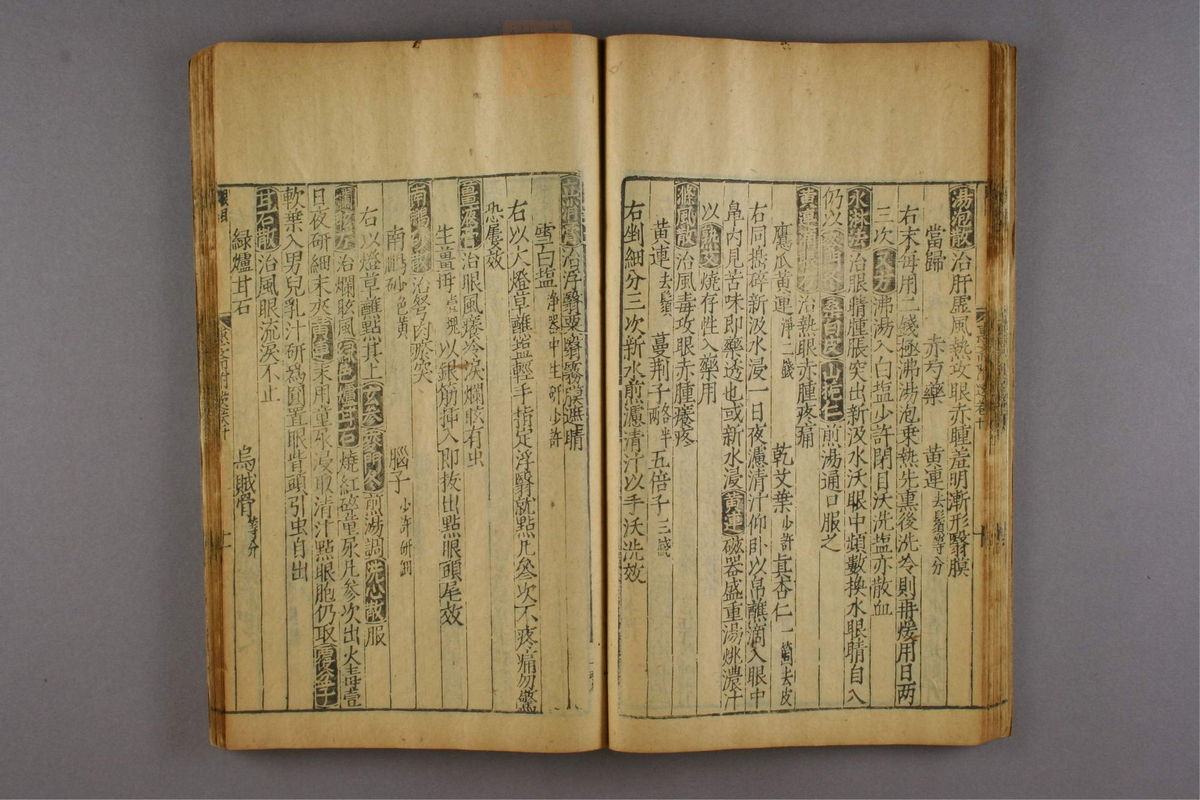 湯泡散治肝虛風熱攻眼赤腫羞明漸形翳膜
當歸 赤芍藥 黃連去鬚等分
右末每用二錢極沸湯泡乗熱先熏後洗冷則再煖用日两
三次又方沸湯入白塩少許閉目沃洗塩亦散血
水淋法治眼睛腫脹突出新汲水沃眼中頻數換水眼睛自入
仍以麥門冬桑白皮山梔仁煎湯通口服之
黃連治熱眼赤腫疼痛
鷹瓜黃連淨二錢 乾艾葉少許真杏仁一去皮
右同搗碎新汲水浸一日夜濾清汁仰臥以帛蘸滴入眼中
鼻内見苦味即藥透也或新水浸黃連磁器盛重湯烑濃汁
以熟艾燒存性入藥用
滌風散治風毒攻眼赤腫癢疼
黃連去鬚 蔓荆子各半两 五倍子三錢
右剉細分三次新水煎濾清汁以手沃洗效
治浮翳粟翳霧膜遮睛
雪白塩淨器中生研少許
右以大燈草蘸塩輕手指定浮翳就點凡叄次不疼痛勿驚
恐屢效
薑液膏治眼風癢冷淚爛眩有虫
生薑母壹塊以銀筋揷入即拔出點眼頭尾效
南硼砂散治弩肉瘀突
南鵬砂色黃 腦子少許研細
右以燈草蘸點其上玄參麥門冬煎湯調洗心散服
治爛眩風緑色爐甘石燒紅童尿凡參次出火毒壹
日夜研細末夾黃連末用童尿浸取清汁點眼胞仍取覆盆子
軟葉入男兒乳汁研爲圓置眼眥頭引虫自出
甘石散治風眼流淚不止
緑爐甘石 烏賊骨等分